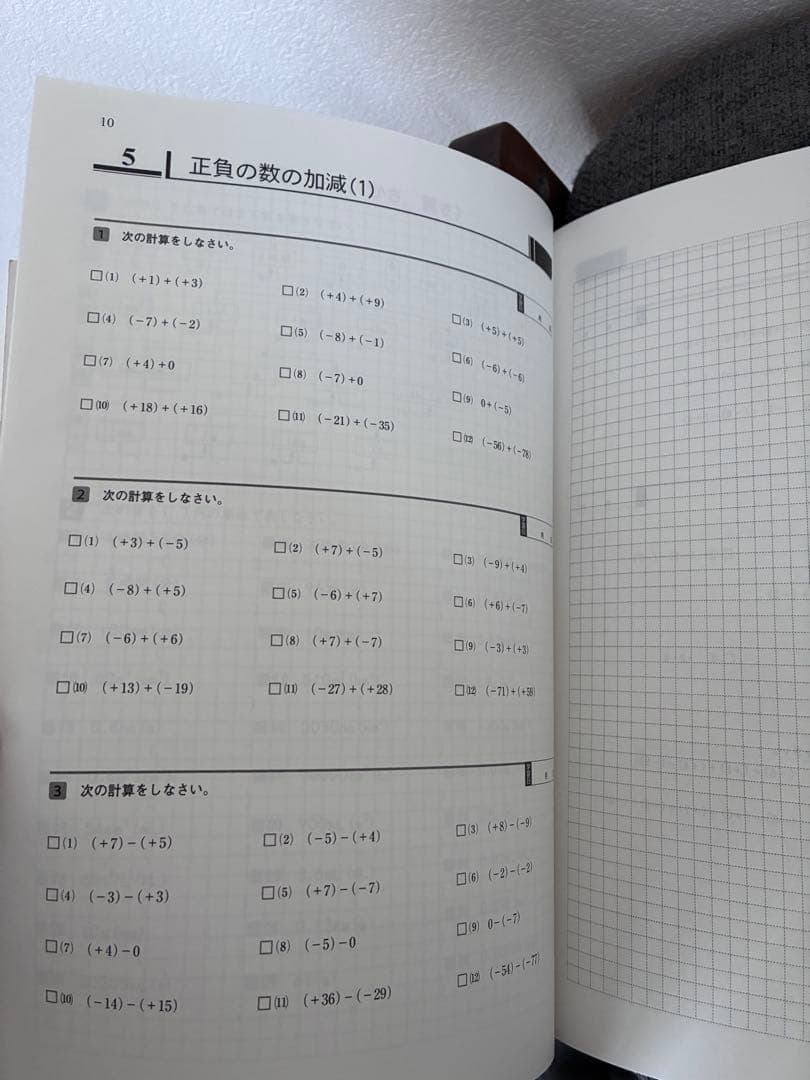 10
5 正負の数の加減(1)
1 次の計算をしなさい。
□(1) (+1)+(+3) □(2) (+4)+(+9) □(3) (+5)+(+5)
□(4) (−7)+(−2) □(5) (−8)+(−1) □(6) (−6)+(−6)
□(7) (+4)+0 □(8) (−7)+0 □(9) 0+(−5)
□(10) (+18)+(+16) □(11) (−21)+(−35) □(12) (−56)+(−78)
2 次の計算をしなさい。
□(1) (+3)+(−5) □(2) (+7)+(−5) □(3) (−9)+(+4)
□(4) (−8)+(+5) □(5) (−6)+(+7) □(6) (+6)+(−7)
□(7) (−6)+(+6) □(8) (+7)+(−7) □(9) (−3)+(+3)
□(10) (+13)+(−19) □(11) (−27)+(+28) □(12) (−71)+(+59)
3 次の計算をしなさい。
□(1) (+7)−(+5) □(2) (−5)−(+4) □(3) (+8)−(−9)
□(4) (−3)−(+3) □(5) (+7)−(−7) □(6) (−2)−(−2)
□(7) (+4)−0 □(8) (−5)−0 □(9) 0−(−7)
□(10) (−14)−(+15) □(11) (+36)−(−29) □(12) (−54)−(−77)